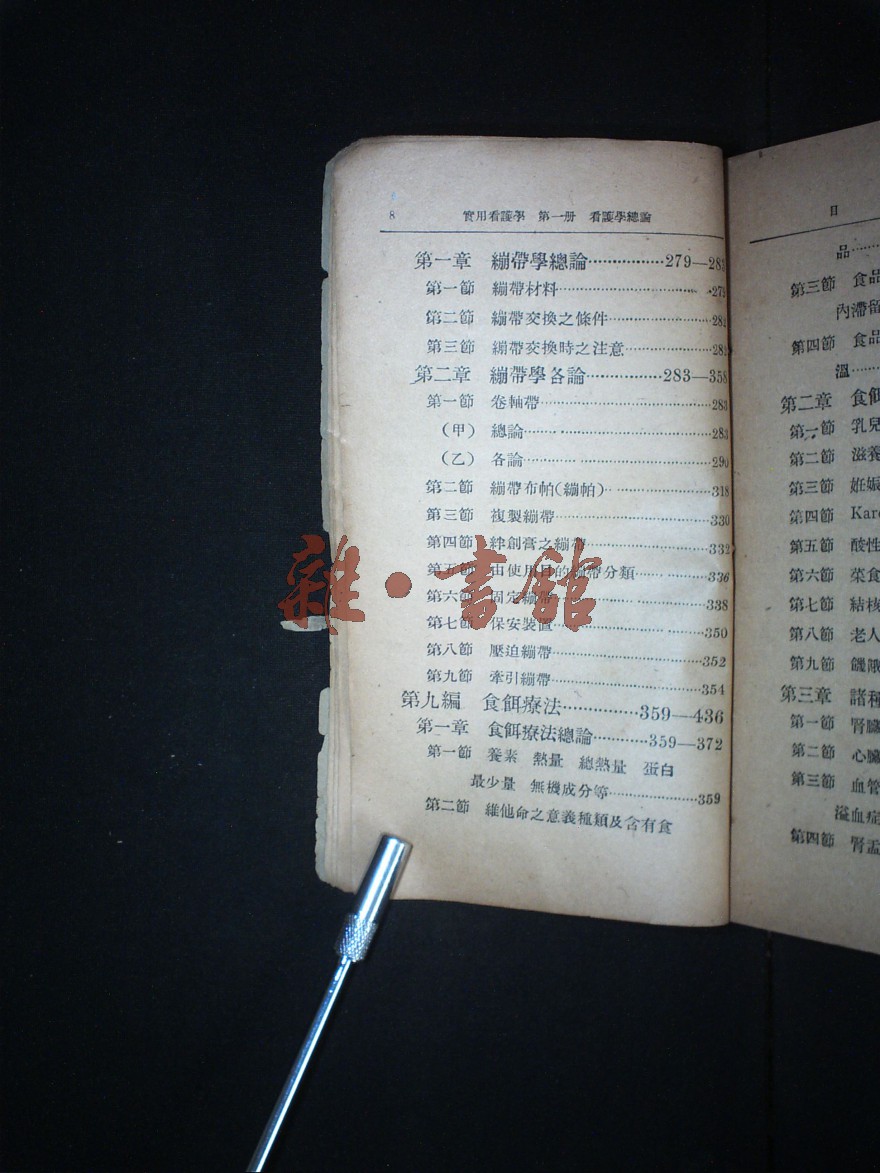 8 實用看護學 第一册 看護學總論
第一章 繃帶學總論················279—283
第一節 繃帶材料································279
第二節 繃帶交換之條件······················282
第三節 繃帶交換時之注意··················282
第二章 繃帶學各論················283—358
第一節 卷軸帶··································283
（甲） 總論······································283
（乙） 各論······································290
第二節 繃帶布帕（繃帕）····················318
第三節 複製繃帶································330
第四節 絆創膏之繃帶··························332
第五節 由使用目的繃帶分類················336
第六節 固定繃帶································338
第七節 保安裝置································350
第八節 壓迫繃帶································352
第九節 牽引繃帶································354
第九編 食餌療法················359—436
第一章 食餌療法總論············359—372
第一節 養素 熱量 總熱量 蛋白
最少量 無機成分等····················359
第二節 維他命之意義種類及含有食
雜·書舘
目
品
第三節 食品
內滯留
第四節 食品
溫
第二章 食餌
第一節 乳兒
第二節 滋養
第三節 姙娠
第四節 Kare
第五節 酸性
第六節 菜食
第七節 結核
第八節 老人
第九節 饑餓
第三章 諸種
第一節 腎臟
第二節 心臟
第三節 血管
溢血症
第四節 腎盂